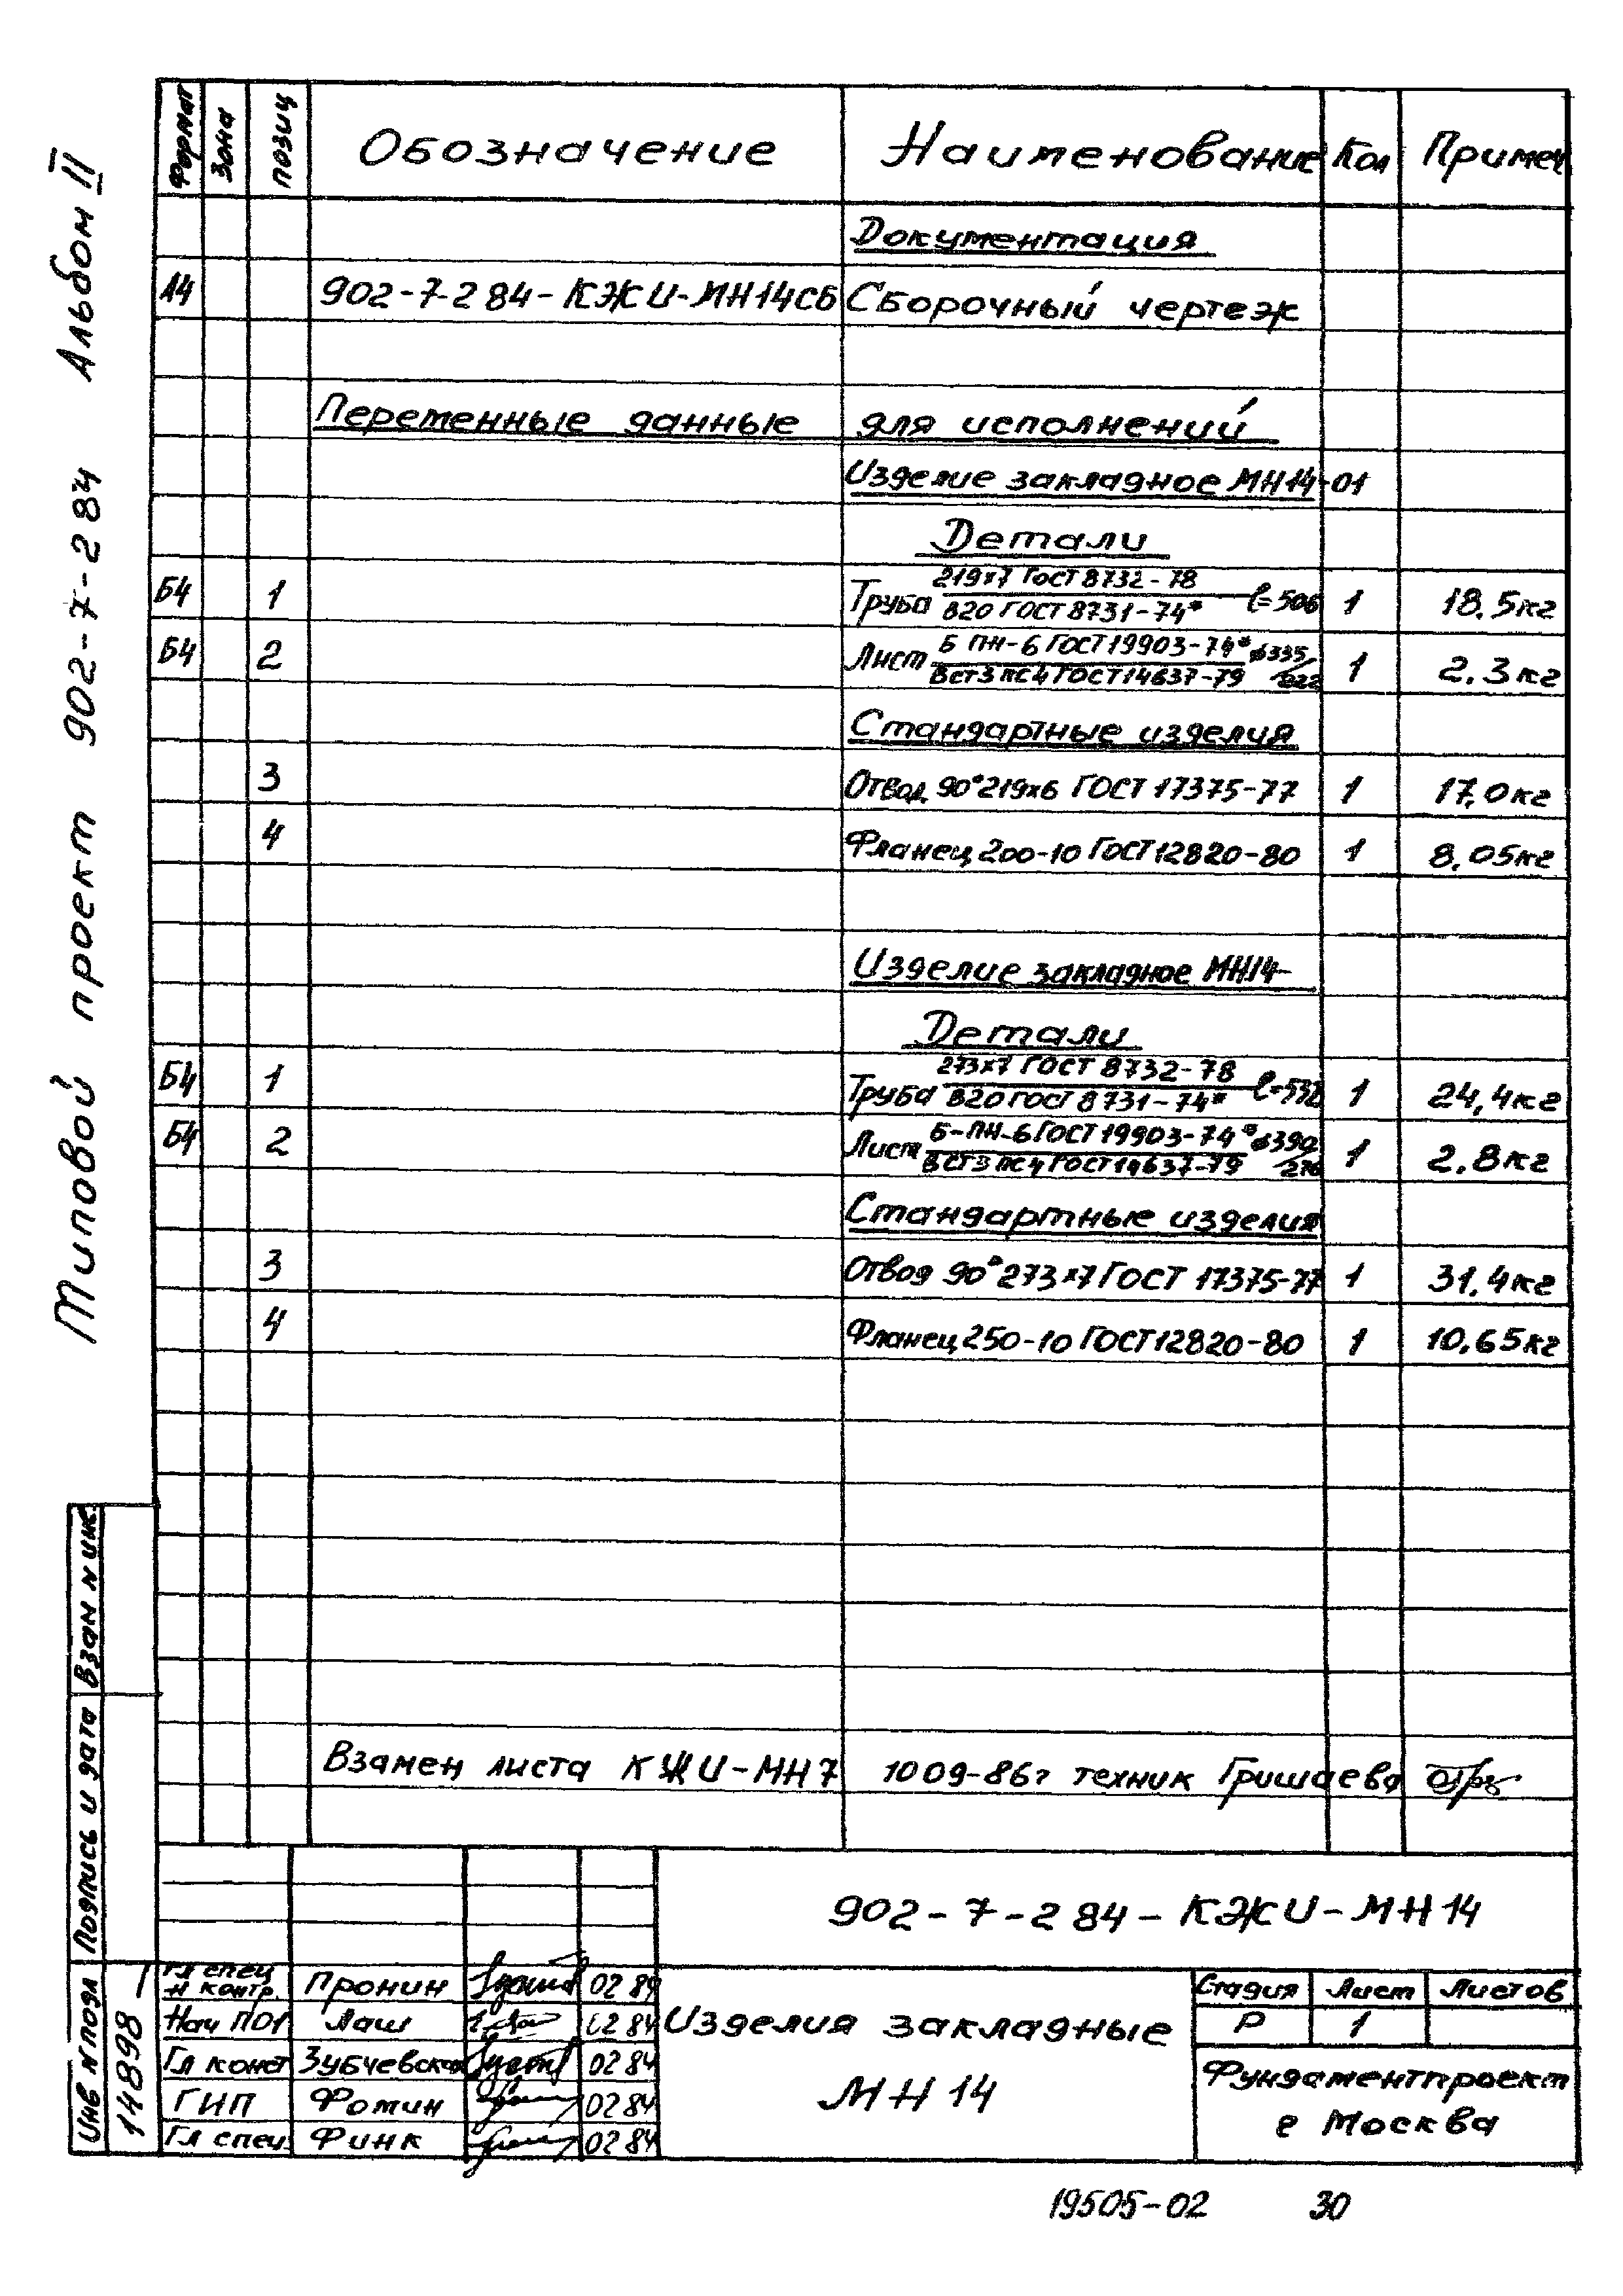 Типовой проект 902-7-284 Альбом II
Формат Зона позиц Обозначение Наименование Кол Примеч
Документация
А4 902-7-284-КЖИ-МН14СБ Сборочный чертеж
Переменные данные для исполнений
Изделие закладное МН14-01
Детали
Б4 1 Труба 219х7 ГОСТ 8732-78 / В20 ГОСТ 8731-74* ℓ=506 1 18.5кг
Б4 2 Лист Б ПН-6 ГОСТ 19903-74* / Вст3 пс4 ГОСТ 14637-79 ø335/222 1 2.3кг
Стандартные изделия
3 Отвод 90°219х6 ГОСТ 17375-77 1 17,0кг
4 Фланец 200-10 ГОСТ 12820-80 1 8,05кг
Изделие закладное МН14-
Детали
Б4 1 Труба 273х7 ГОСТ 8732-78 / В20 ГОСТ 8731-74* ℓ=532 1 24,4кг
Б4 2 Лист Б-ПН-6 ГОСТ 19903-74* / Вст3 пс4 ГОСТ 14637-79 ø390/276 1 2.8кг
Стандартные изделия
3 Отвод 90°273х7 ГОСТ 17375-77 1 31.4кг
4 Фланец 250-10 ГОСТ 12820-80 1 10.65кг
Взамен листа КЖИ-МН7 1009-86г техник Гришаева
Взам N инв.
Подпись и дата
Инв N подл
14898
902-7-284-КЖИ-МН14
Гл спец н контр. Пронин 02 84
Нач ПО1 Лаш 02 84
Гл конст Зубчевская 02 84
ГИП Фомин 02 84
Гл спец. Финк 02 84
Изделия закладные
МН 14
Стадия Лист Листов
Р 1
Фундаментпроект
г Москва
19505-02 30